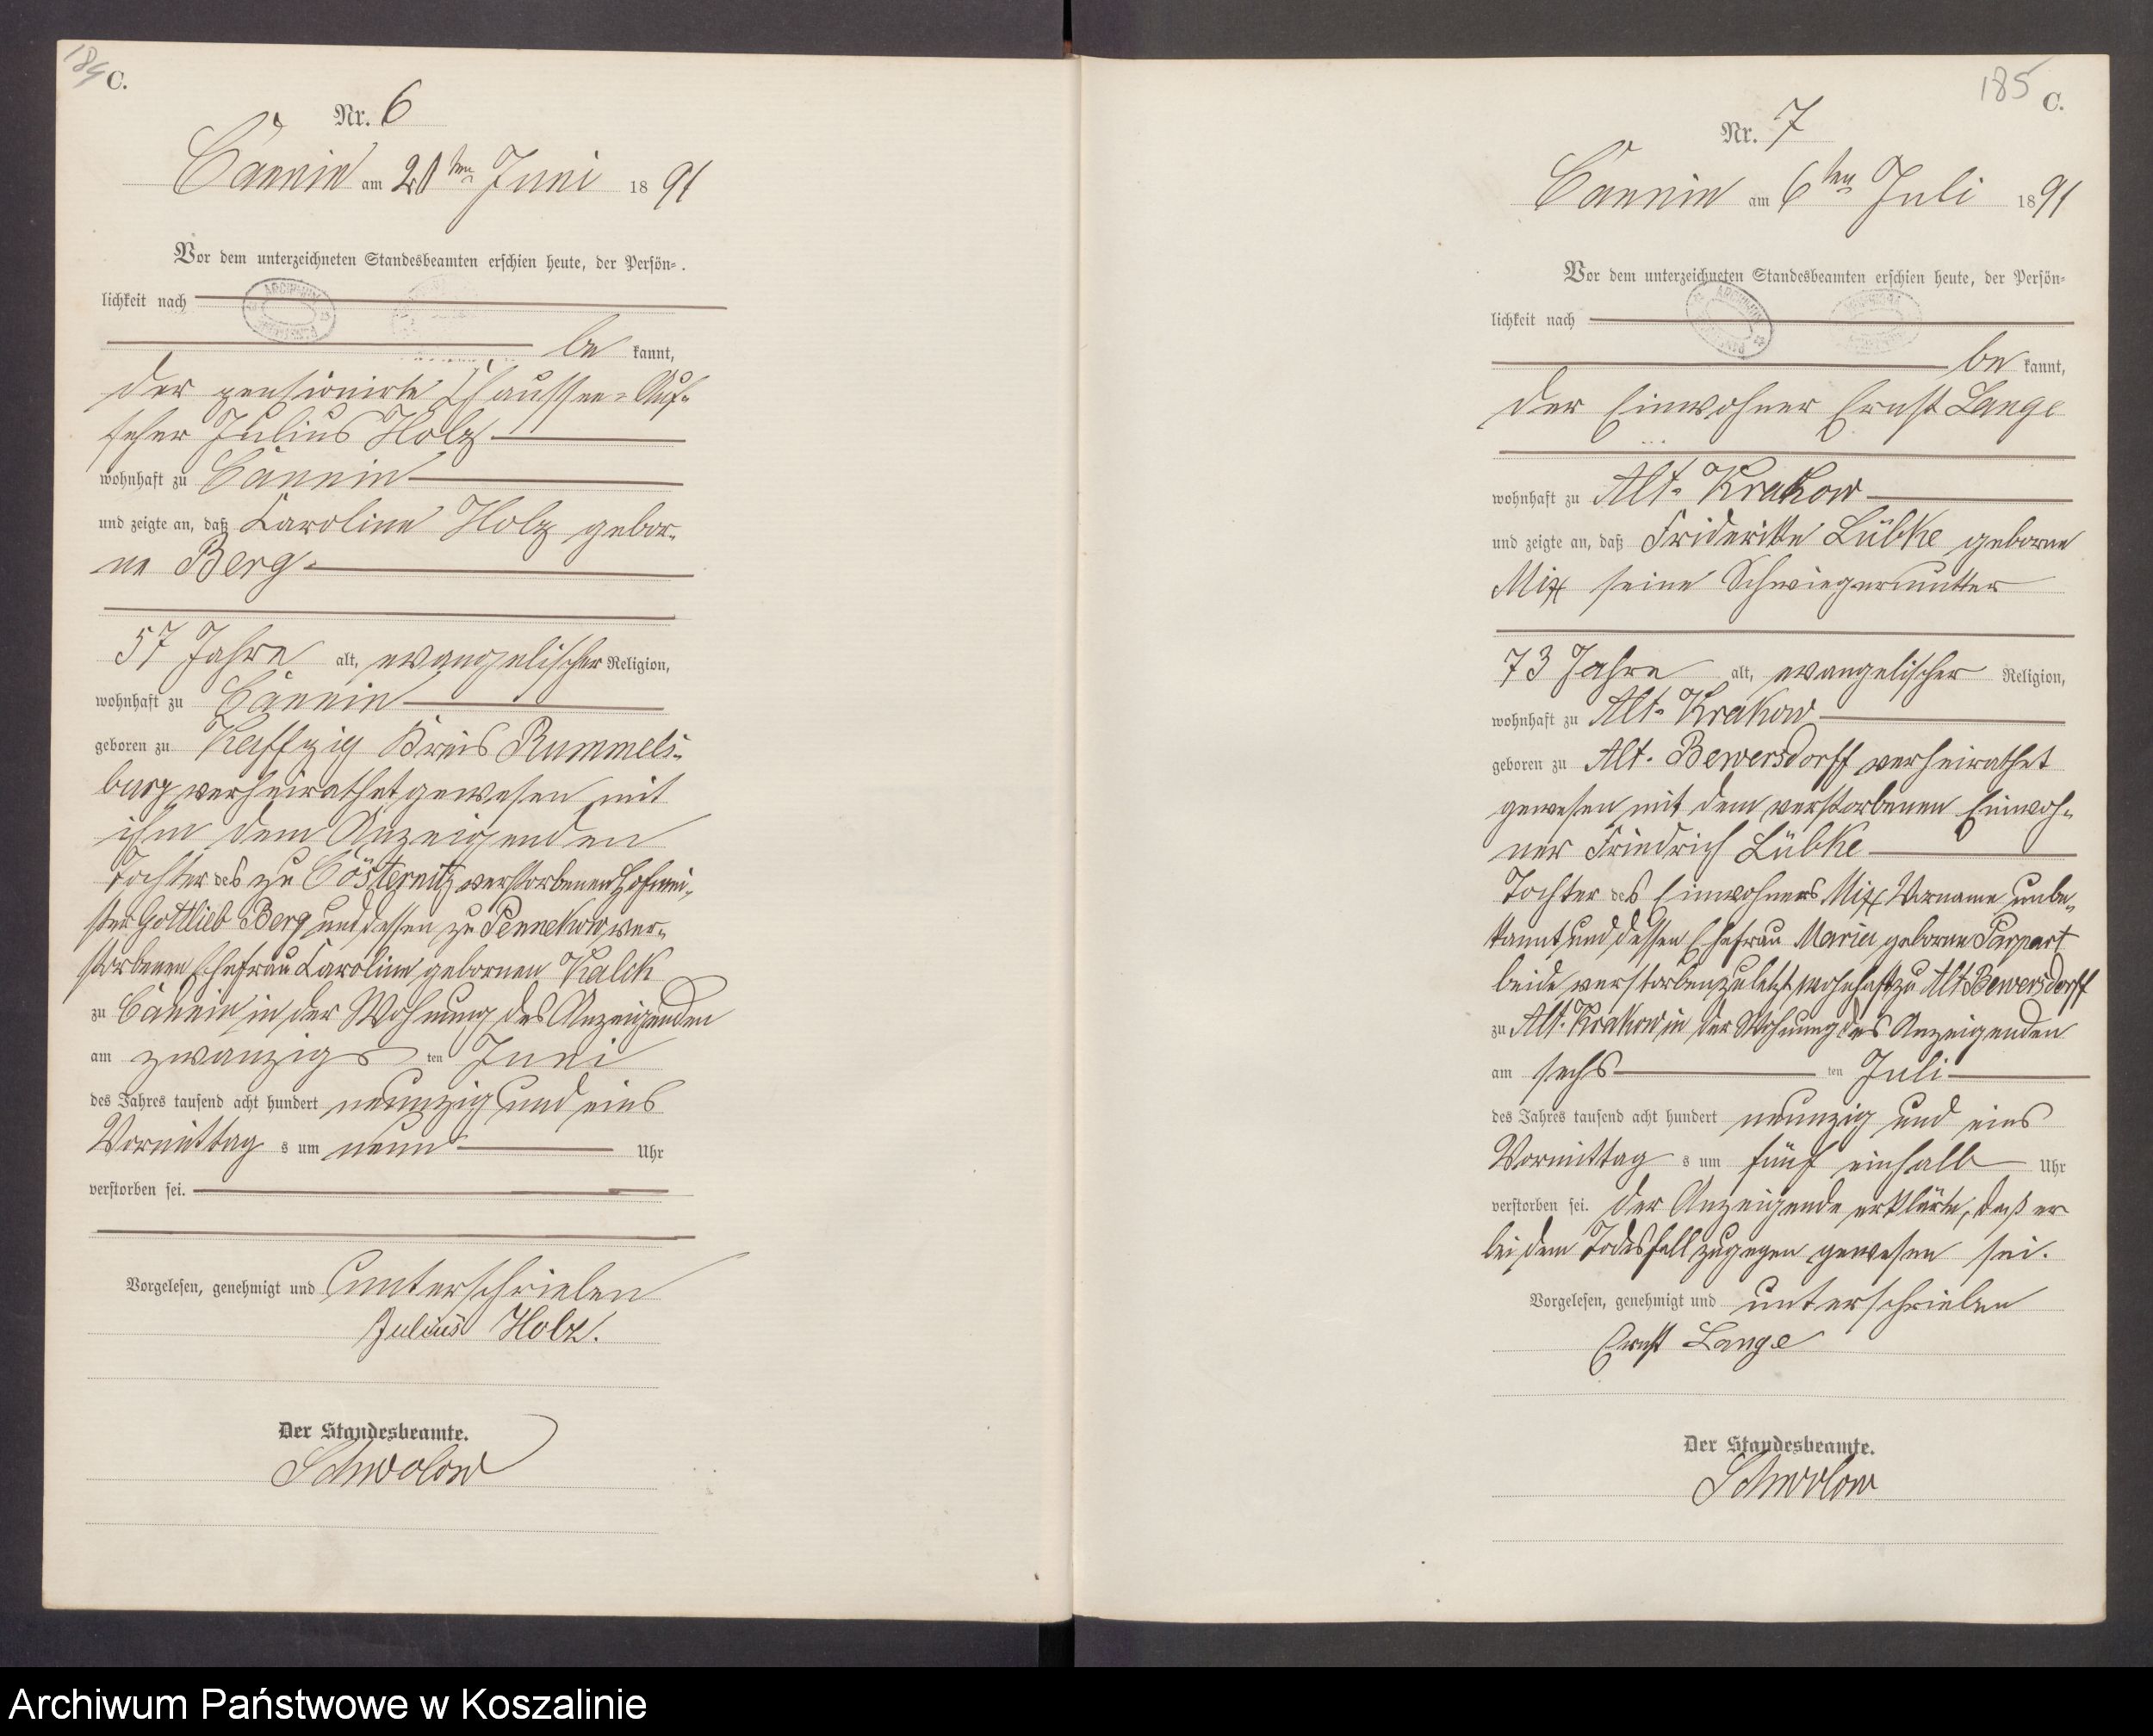 184 C.
Nr. 6
Cannin am 21ten Juni 1891
Vor dem unterzeichneten Standesbeamten erschien heute, der Persön-
lichkeit nach
be kannt,
der pensionirte Chaussee-Auf-
seher Julius Holz
wohnhaft zu Cannin
und zeigte an, daß Caroline Holz gebor-
ne Berg
57 Jahre alt, evangelischer Religion,
wohnhaft zu Cannin
geboren zu Kaffzig Kreis Rummels-
burg verheirathet gewesen mit
ihm dem Anzeigenden
Tochter des zu Cösternitz verstorbenen Hofmei-
ster Gottlieb Berg und dessen zu Pennekow ver-
storbenen Ehefrau Caroline gebornen Kalck
zu Cannin in der Wohnung des Anzeigenden
am zwanzigs ten Juni
des Jahres tausend acht hundert neunzig und eins
Vormittag s um neun Uhr
verstorben sei.
Vorgelesen, genehmigt und unterschrieben
Julius Holz.
Der Standesbeamte.
Schwolow
185 C.
Nr. 7
Cannin am 6ten Juli 1891
Vor dem unterzeichneten Standesbeamten erschien heute, der Persön-
lichkeit nach
be kannt,
der Einwohner Ernst Lange
wohnhaft zu Alt-Krakow
und zeigte an, daß Friderikke Lübke geborne
Mix seine Schwiegermutter
73 Jahre alt, evangelischer Religion,
wohnhaft zu Alt-Krakow
geboren zu Alt-Bewersdorff verheirathet
gewesen mit dem verstorbenen Einwoh-
ner Friedrich Lübke
Tochter des Einwohners Mix Vorname unbe-
kannt, und dessen Ehefrau Maria geborne Parpart
beide verstorben zuletzt wohnhaft zu Alt Bewersdorff
zu Alt-Krakow in der Wohnung des Anzeigenden
am sechs ten Juli
des Jahres tausend acht hundert neunzig und eins
Vormittag s um fünf einhalb Uhr
verstorben sei. Der Anzeigende erklärte, daß er
bei dem Todesfall zugegen gewesen sei.
Vorgelesen, genehmigt und unterschrieben
Ernst Lange
Der Standesbeamte.
Schwolow
Archiwum Państwowe w Koszalinie